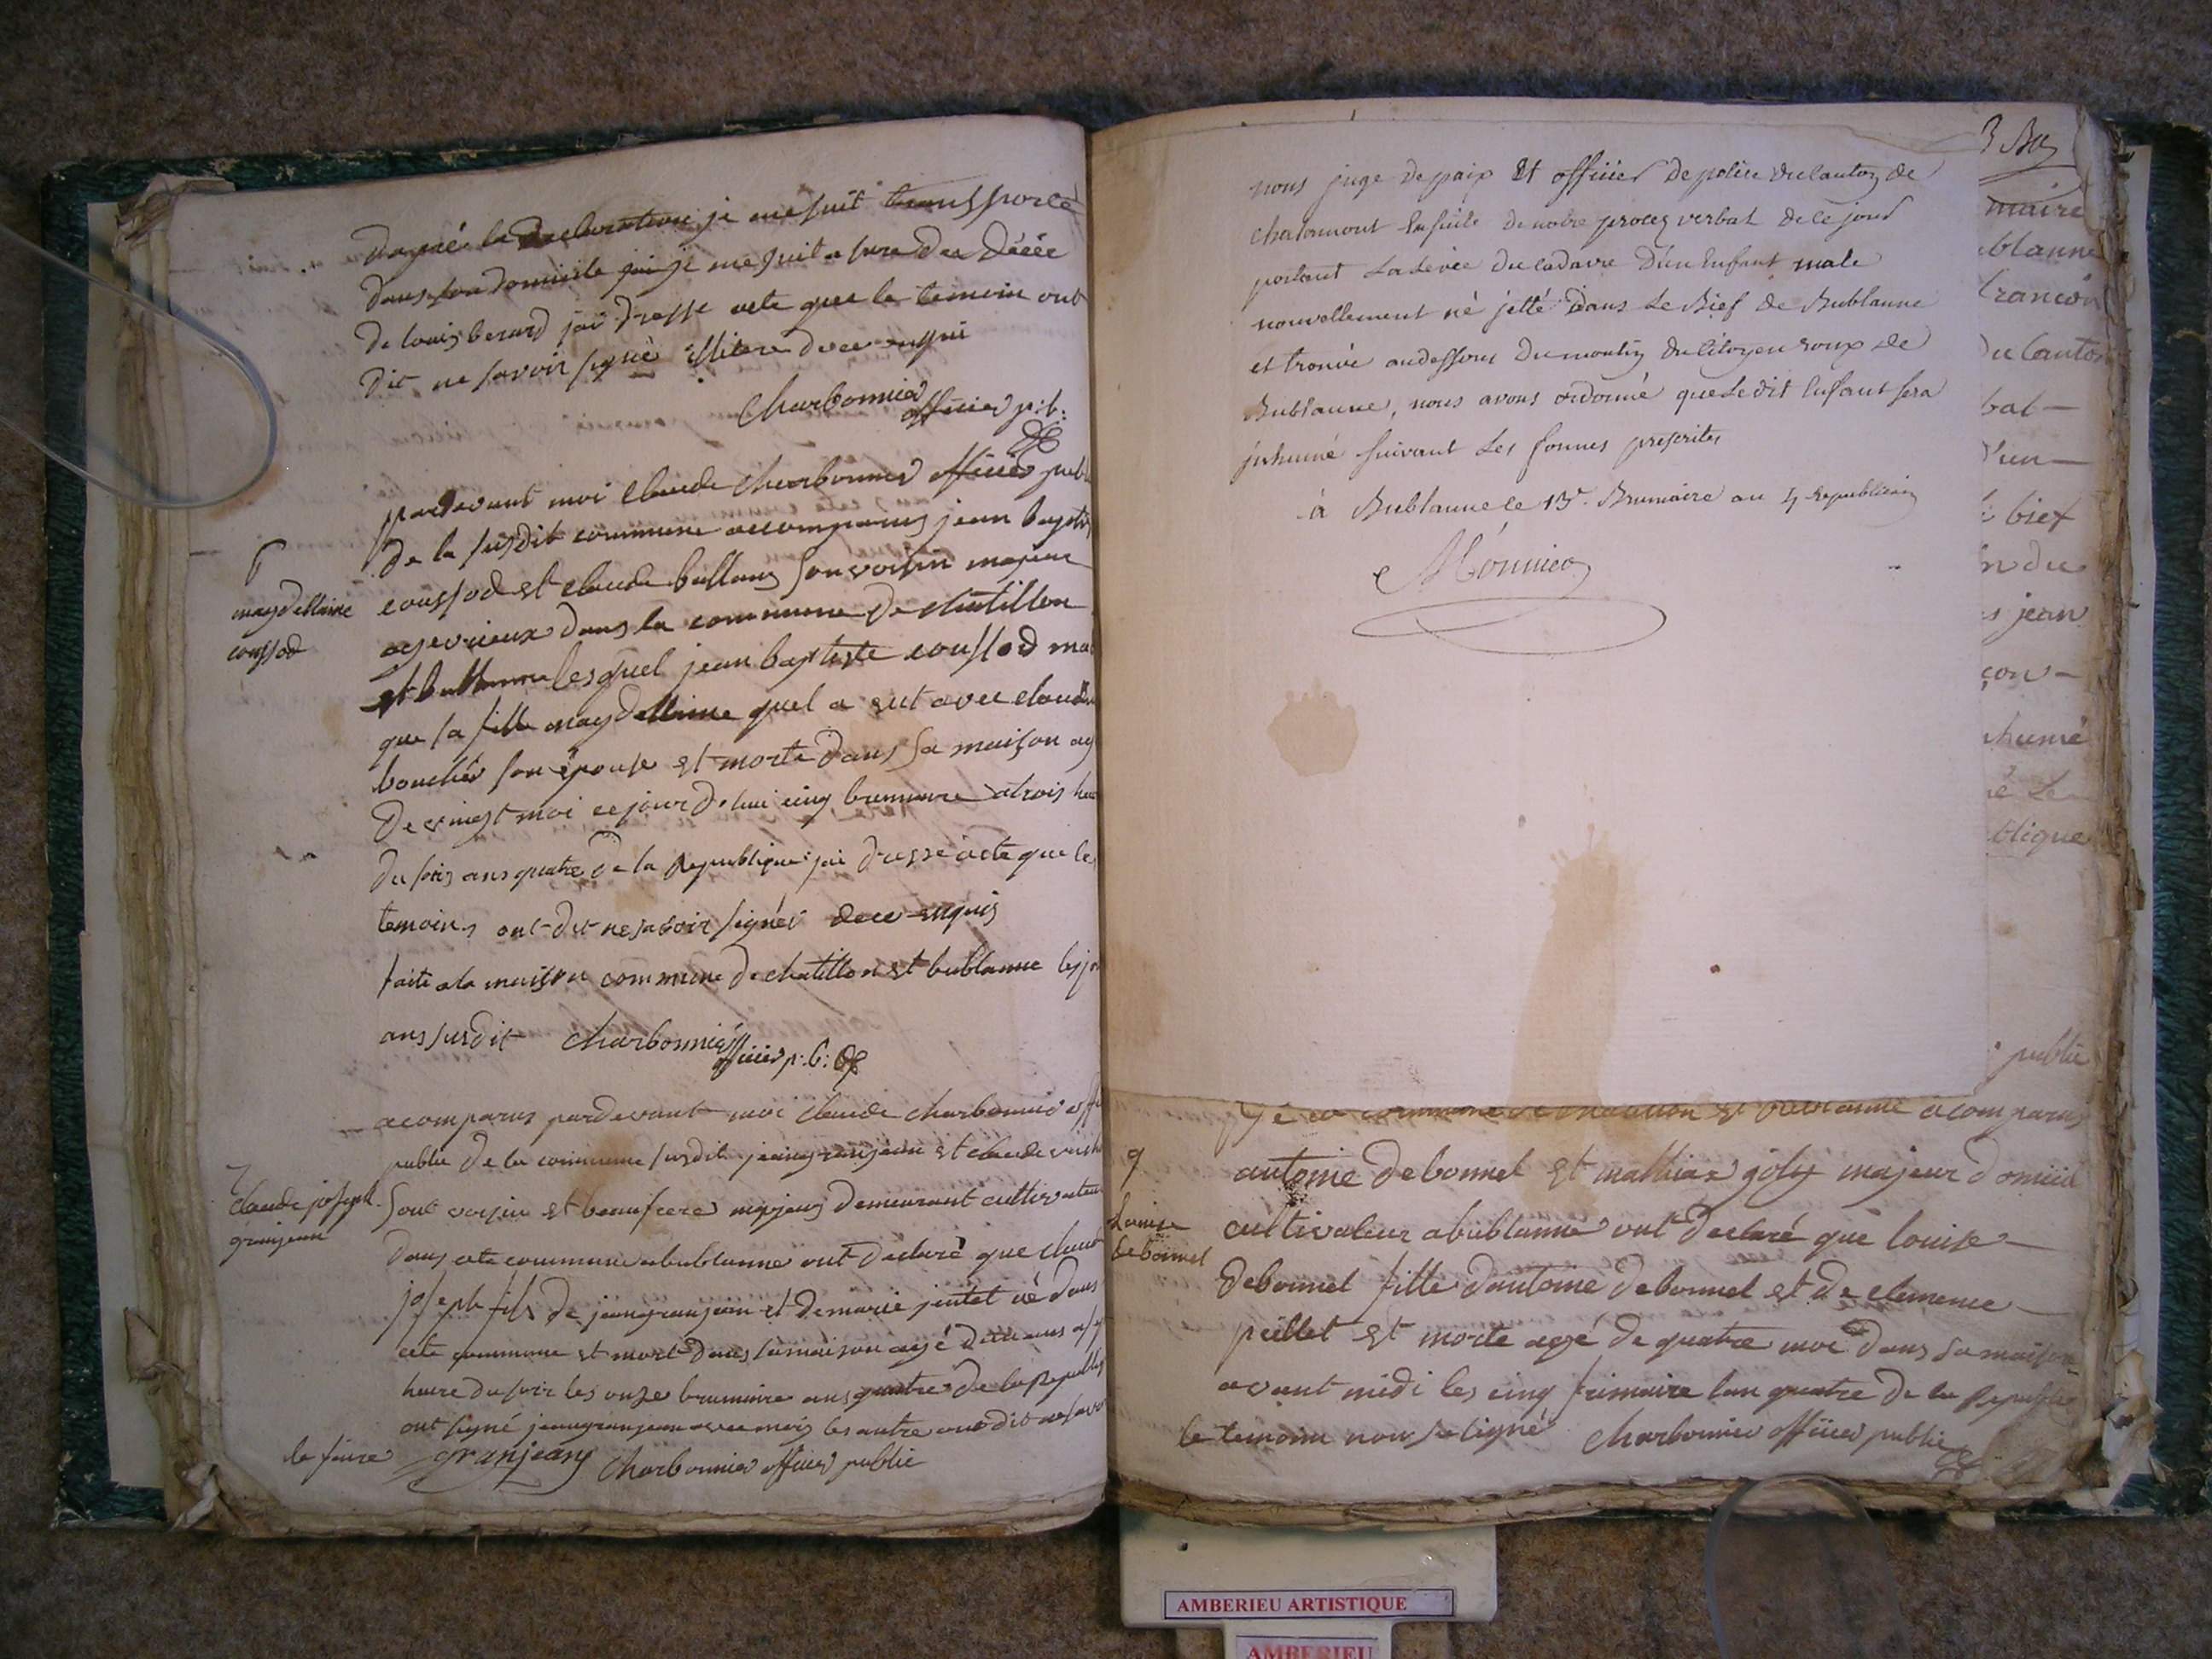 dapré la declaration je me suit transporté
dans son domicile jai je me suit asure du décée
de louis berard jai dresse acte que le temoin ont
dit ne savoir signé illitere de ce enquis
Charbonnier
officier p:b:
6
magdellaine
coussod
pardevant moi Claude Charbonnier officier publ
de la susdit commune accomparus jean baptis
coussod et claude ballans son voisin majeur
agevieux dans la commune de chatillon
et bublanne lesquel jean baptiste coussod ma
que sa fille magdellaine quel a eut avec claud
bouchér son épouse et morte dans sa maison ag
de vingt moi ce jour dhui cinq brumaire a trois heu
du soir ans quatre de la Republique jai dressé acte que les
temoins ont dit ne savoir signér de ce enquis
faite a la maison commune de chatillon et bublanne les jo
ans susdit Charbonnier
officier p:b:
acomparus pardevant moi Claude charbonnier offi
public de la commune susdit jean granjean et claude
7
Claude joseph
granjean
sont voisin et beaufrere majeurs demeurant cultivateur
dans cete commune a bublanne ont declaré que claud
joseph fils de jean granjean et de marie jentet né dans
cete commune et mort dans sa maison agé
heure du soir les onze brumaire ans quatre de la Republiq
ont signé jean granjean avec moi les autre ont dit ne savoi
le faire granjean Charbonnier officier public
nous juge de paix et officier de police du canton de
chalamont en suite de notre procez verbal de ce jour
portant la levée du cadavre d'un enfant male
nouvellement né jetté dans le Bief de Bublanne
et trouvé audessous du moulin du citoyen roux de
Bublanne, nous avons ordonné que le dit enfant sera
inhumé suivant les formes prescrites
à Bublanne le 15. Brumaire an 4 republicain
Monnier
maire
blanne
francon
du Canton
bal —
d'un —
bief
n du
s jean
çon —
nhumé
é Le
blique
public
commune de chatillon et bublanne acomparus
9
Louise
debonnel
antoine debonnel et mathiax joly majeur domicil
cultivateur a bublanne ont declaré que louise —
debonnel fille dantoine debonnel et de clemence —
peillet et morte agé de quatre moi dans sa maison
avant midi les cinq frimaire lan quatre de la Republi
le temoin non signé Charbonnier officier public
AMBERIEU ARTISTIQUE
AMBERIEU